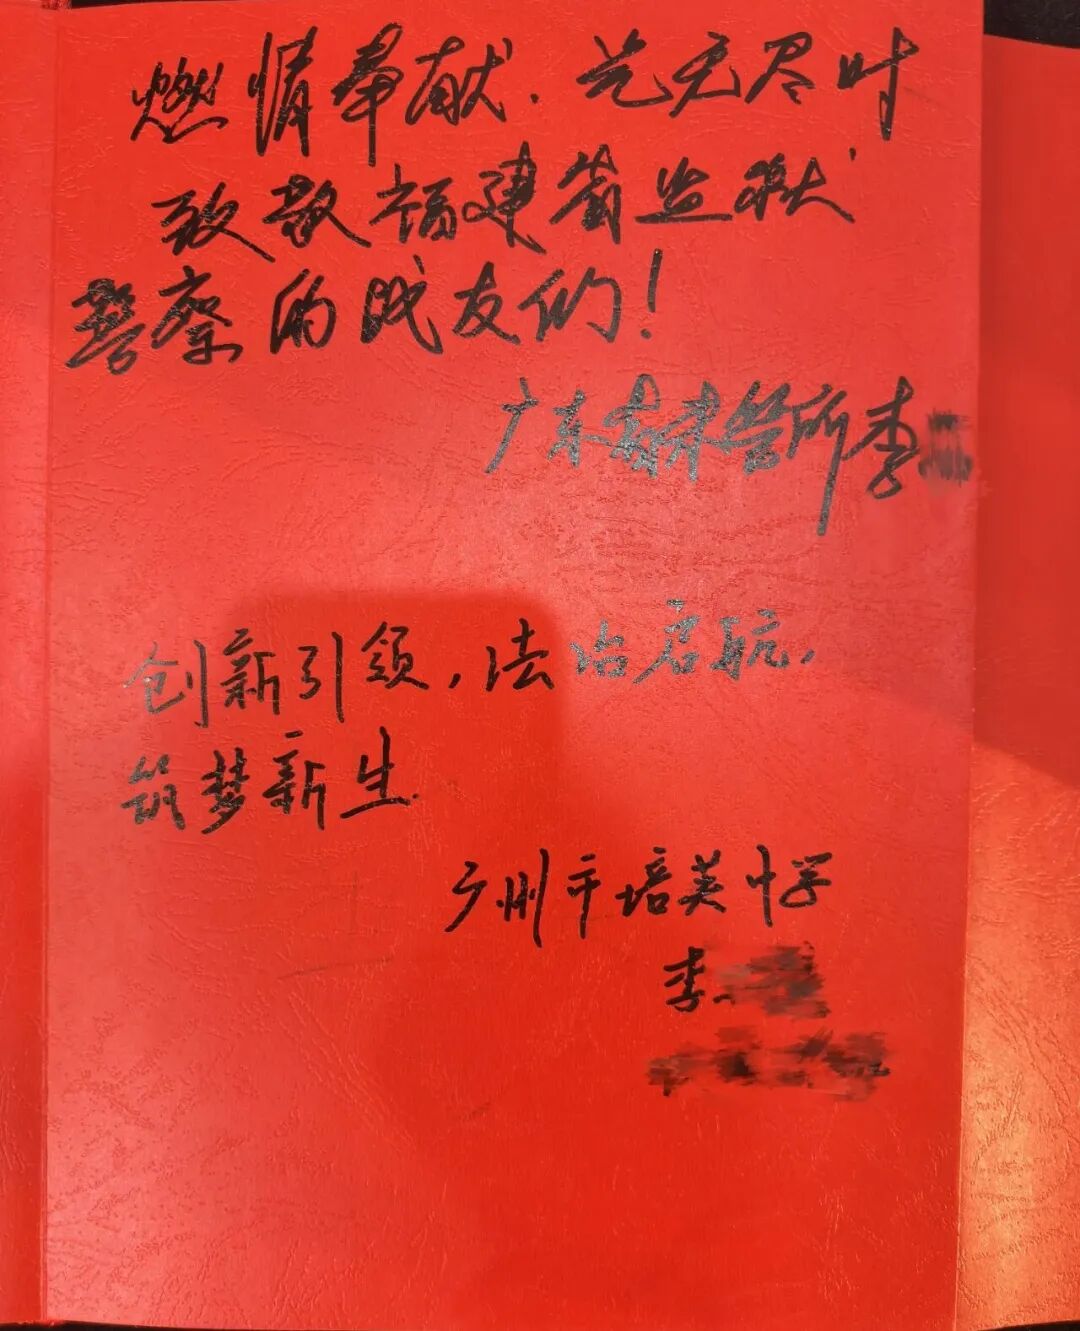 燃情奉献.艺无尽时
致敬福建省监狱
警察的战友们!
广东省未管所李
创新引领,法治启航,
筑梦新生.
广州市培英中学
李